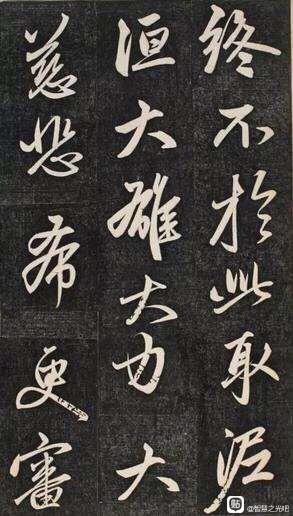 終不於此取泥
洹大雄大力大
慈悲希更審
貼 @智慧之光吧